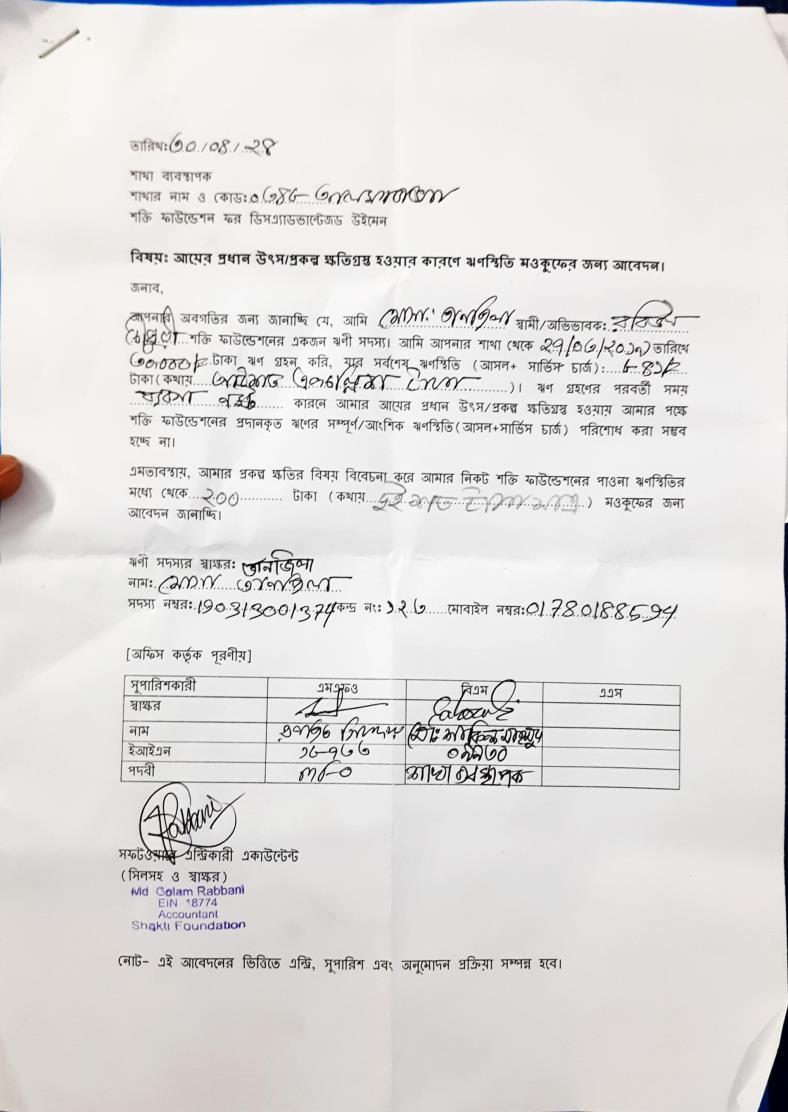 তারিখ: ৩০/০৪/২৪
শাখা ব্যবস্থাপক
শাখার নাম ও কোড:
শক্তি ফাউন্ডেশন ফর ডিসএ্যাডভান্টেজড উইমেন
বিষয়: আয়ের প্রধান উৎস/প্রকল্প ক্ষতিগ্রস্থ হওয়ার কারণে ঋণস্থিতি মওকুফের জন্য আবেদন।
জনাব,
আপনার অবগতির জন্য জানাচ্ছি যে, আমি মোসা: তানজিলা স্বামী/অভিভাবক:
শক্তি ফাউন্ডেশনের একজন ঋণী সদস্য। আমি আপনার শাখা থেকে তারিখে
৩০০০০/= টাকা ঋণ গ্রহন করি, যার সর্বশেষ ঋণস্থিতি (আসল+ সার্ভিস চার্জ): ৮৪১/=
টাকা (কথায় আটশত একচল্লিশ টাকা )। ঋণ গ্রহণের পরবর্তী সময়
কারনে আমার আয়ের প্রধান উৎস/প্রকল্প ক্ষতিগ্রস্থ হওয়ায় আমার পক্ষে
শক্তি ফাউন্ডেশনের প্রদানকৃত ঋণের সম্পূর্ণ/আংশিক ঋণস্থিতি(আসল+সার্ভিস চার্জ) পরিশোধ করা সম্ভব
হচ্ছে না।
এমতাবস্থায়, আমার প্রকল্প ক্ষতির বিষয় বিবেচনা করে আমার নিকট শক্তি ফাউন্ডেশনের পাওনা ঋণস্থিতির
মধ্যে থেকে ২০০ টাকা (কথায় দুইশত টাকা মাত্র) মওকুফের জন্য
আবেদন জানাচ্ছি।
ঋণী সদস্যর স্বাক্ষর: তানজিলা
নাম: মোসা তানজিলা
সদস্য নম্বর: 190313001374 কেন্দ্র নং: ১২৬ মোবাইল নম্বর: 01780188594
[অফিস কর্তৃক পূরণীয়]
সুপারিশকারী এমএফও বিএম এএস
স্বাক্ষর
নাম
ইআইএন
পদবী শাখা ব্যবস্থাপক
Rabbani
সফটওয়্যার এন্ট্রিকারী একাউন্টেন্ট
(সিলসহ ও স্বাক্ষর)
Md Golam Rabbani
EIN 18774
Accountant
Shakti Foundation
নোট- এই আবেদনের ভিত্তিতে এন্ট্রি, সুপারিশ এবং অনুমোদন প্রক্রিয়া সম্পন্ন হবে।